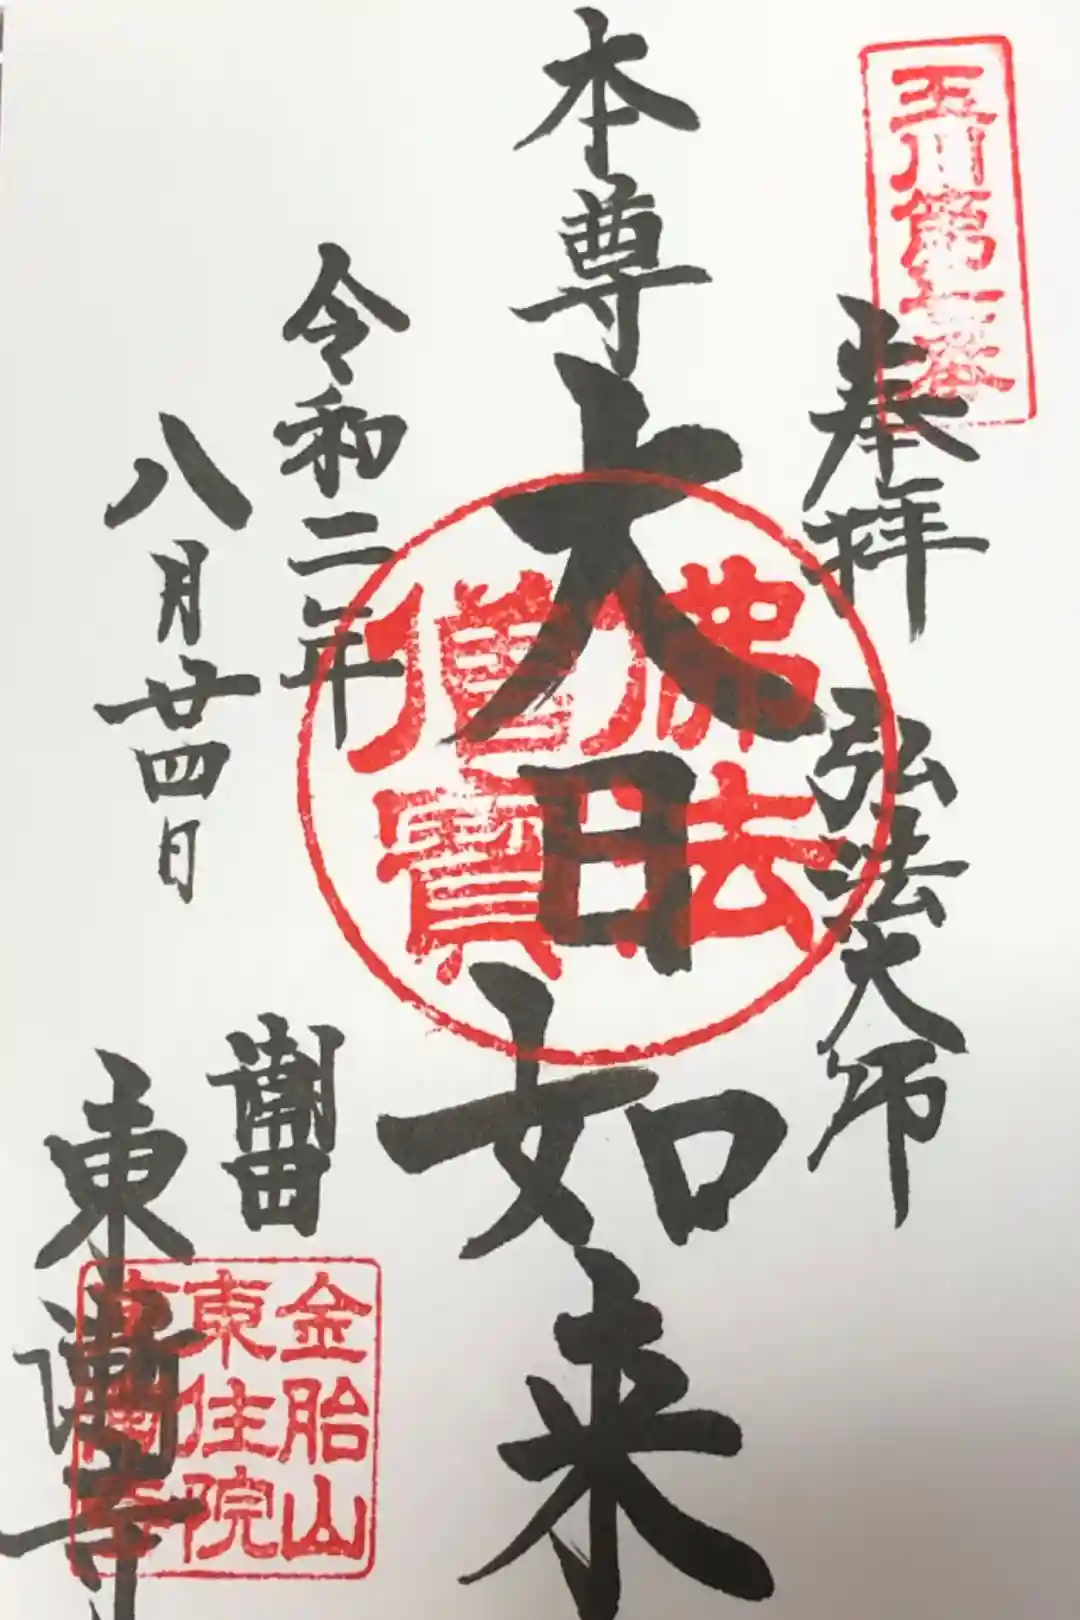 玉川第七番
奉拝 弘法大師
本尊 大日如来
佛法
僧寶
令和二年
八月廿四日
潮田
東漸寺
金胎山
東住院
東漸寺